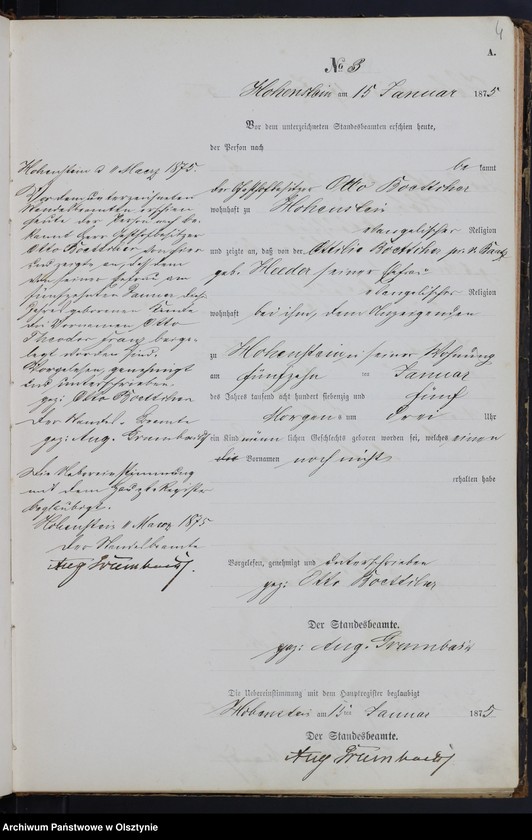 4
A.
No 3
Hohenstein am 15 Januar 1875
Vor dem unterzeichneten Standesbeamten erschien heute,
der Person nach
be kannt
der Otto Boettcher
wohnhaft zu Hohenstein
evangelischer Religion
und zeigte an, daß von der Ottilie Boettcher
geb. seiner Ehefrau
evangelischer Religion
wohnhaft bei ihm, dem Anzeigenden
zu Hohenstein in seiner Wohnung
am fünfzehn ten Januar
des Jahres tausend acht hundert siebenzig und fünf
Morgens um drei Uhr
ein Kind männ lichen Geschlechts geboren worden sei, welches einen
die Vornamen noch nicht
erhalten habe
Vorgelesen, genehmigt und unterschrieben
gez: Otto Boettcher
Der Standesbeamte.
gez: Aug. Grumbach
Die Uebereinstimmung mit dem Hauptregister beglaubigt
Hohenstein am 15ten Januar 1875
Der Standesbeamte.
Aug Grumbach
Hohenstein d 8 Maerz 1875.
Vor dem unterzeichneten
Standesbeamten erschien
heute der Person nach be-
kannt Herr
Otto Boettcher von hier
und zeigte an, daß dem
von seiner Ehefrau am
fünfzehnten Januar
Jahres geborenen Kinde
die Vornamen Otto
Theodor Franz beige-
legt worden sind.
Vorgelesen, genehmigt
und unterschrieben.
gez: Otto Boettcher
Der Standes-Beamte
gez: Aug. Grumbach
Die Uebereinstimmung
mit dem Haupt-Register
beglaubigt.
Hohenstein 8 Maerz 1875
Der Standesbeamte
Aug Grumbach
Archiwum Państwowe w Olsztynie